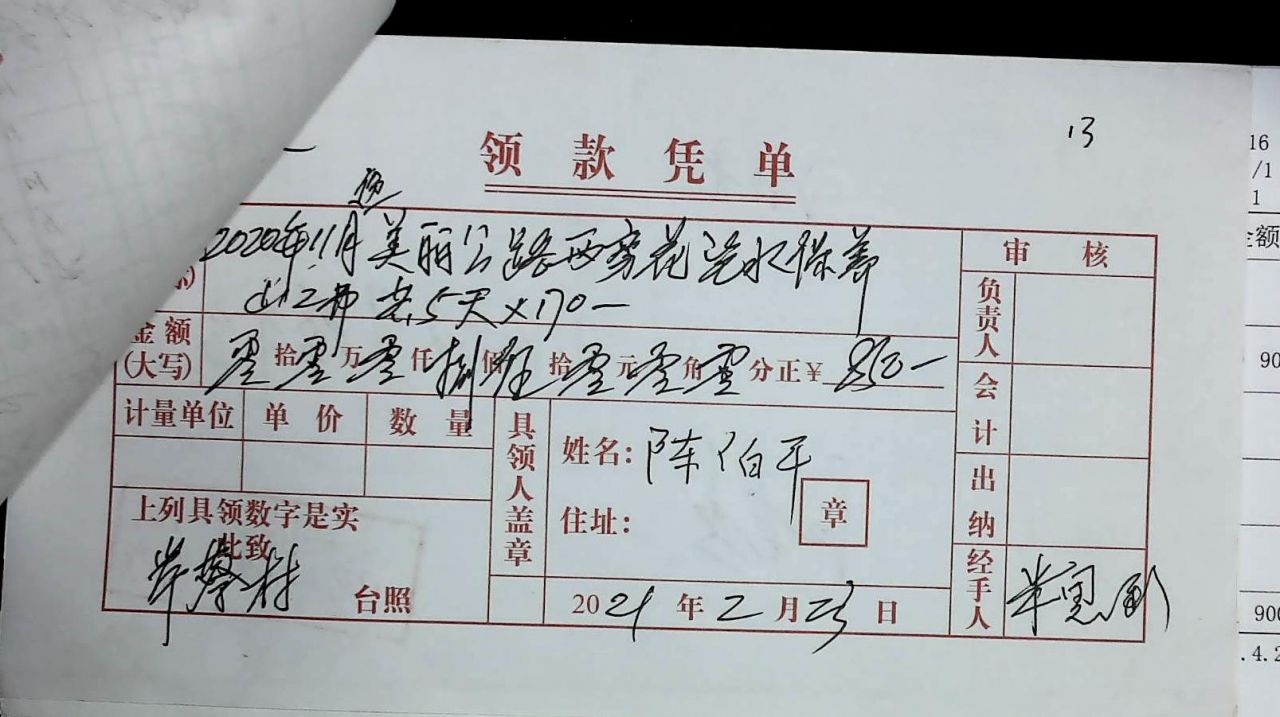 13
领款凭单
2020年11月美丽公路两旁花浇水保养
工资 共5天×170一
审核
负责人
金额(大写) 零拾零万零仟捌佰伍拾零元零角零分正¥850一
会计
计量单位 单价 数量
具领人盖章
姓名：陈伯平
住址：
章
出纳
上列具领数字是实
此致
台照
2021年2月23日
经手人
16
/1
1
金额
90
900
.4.2